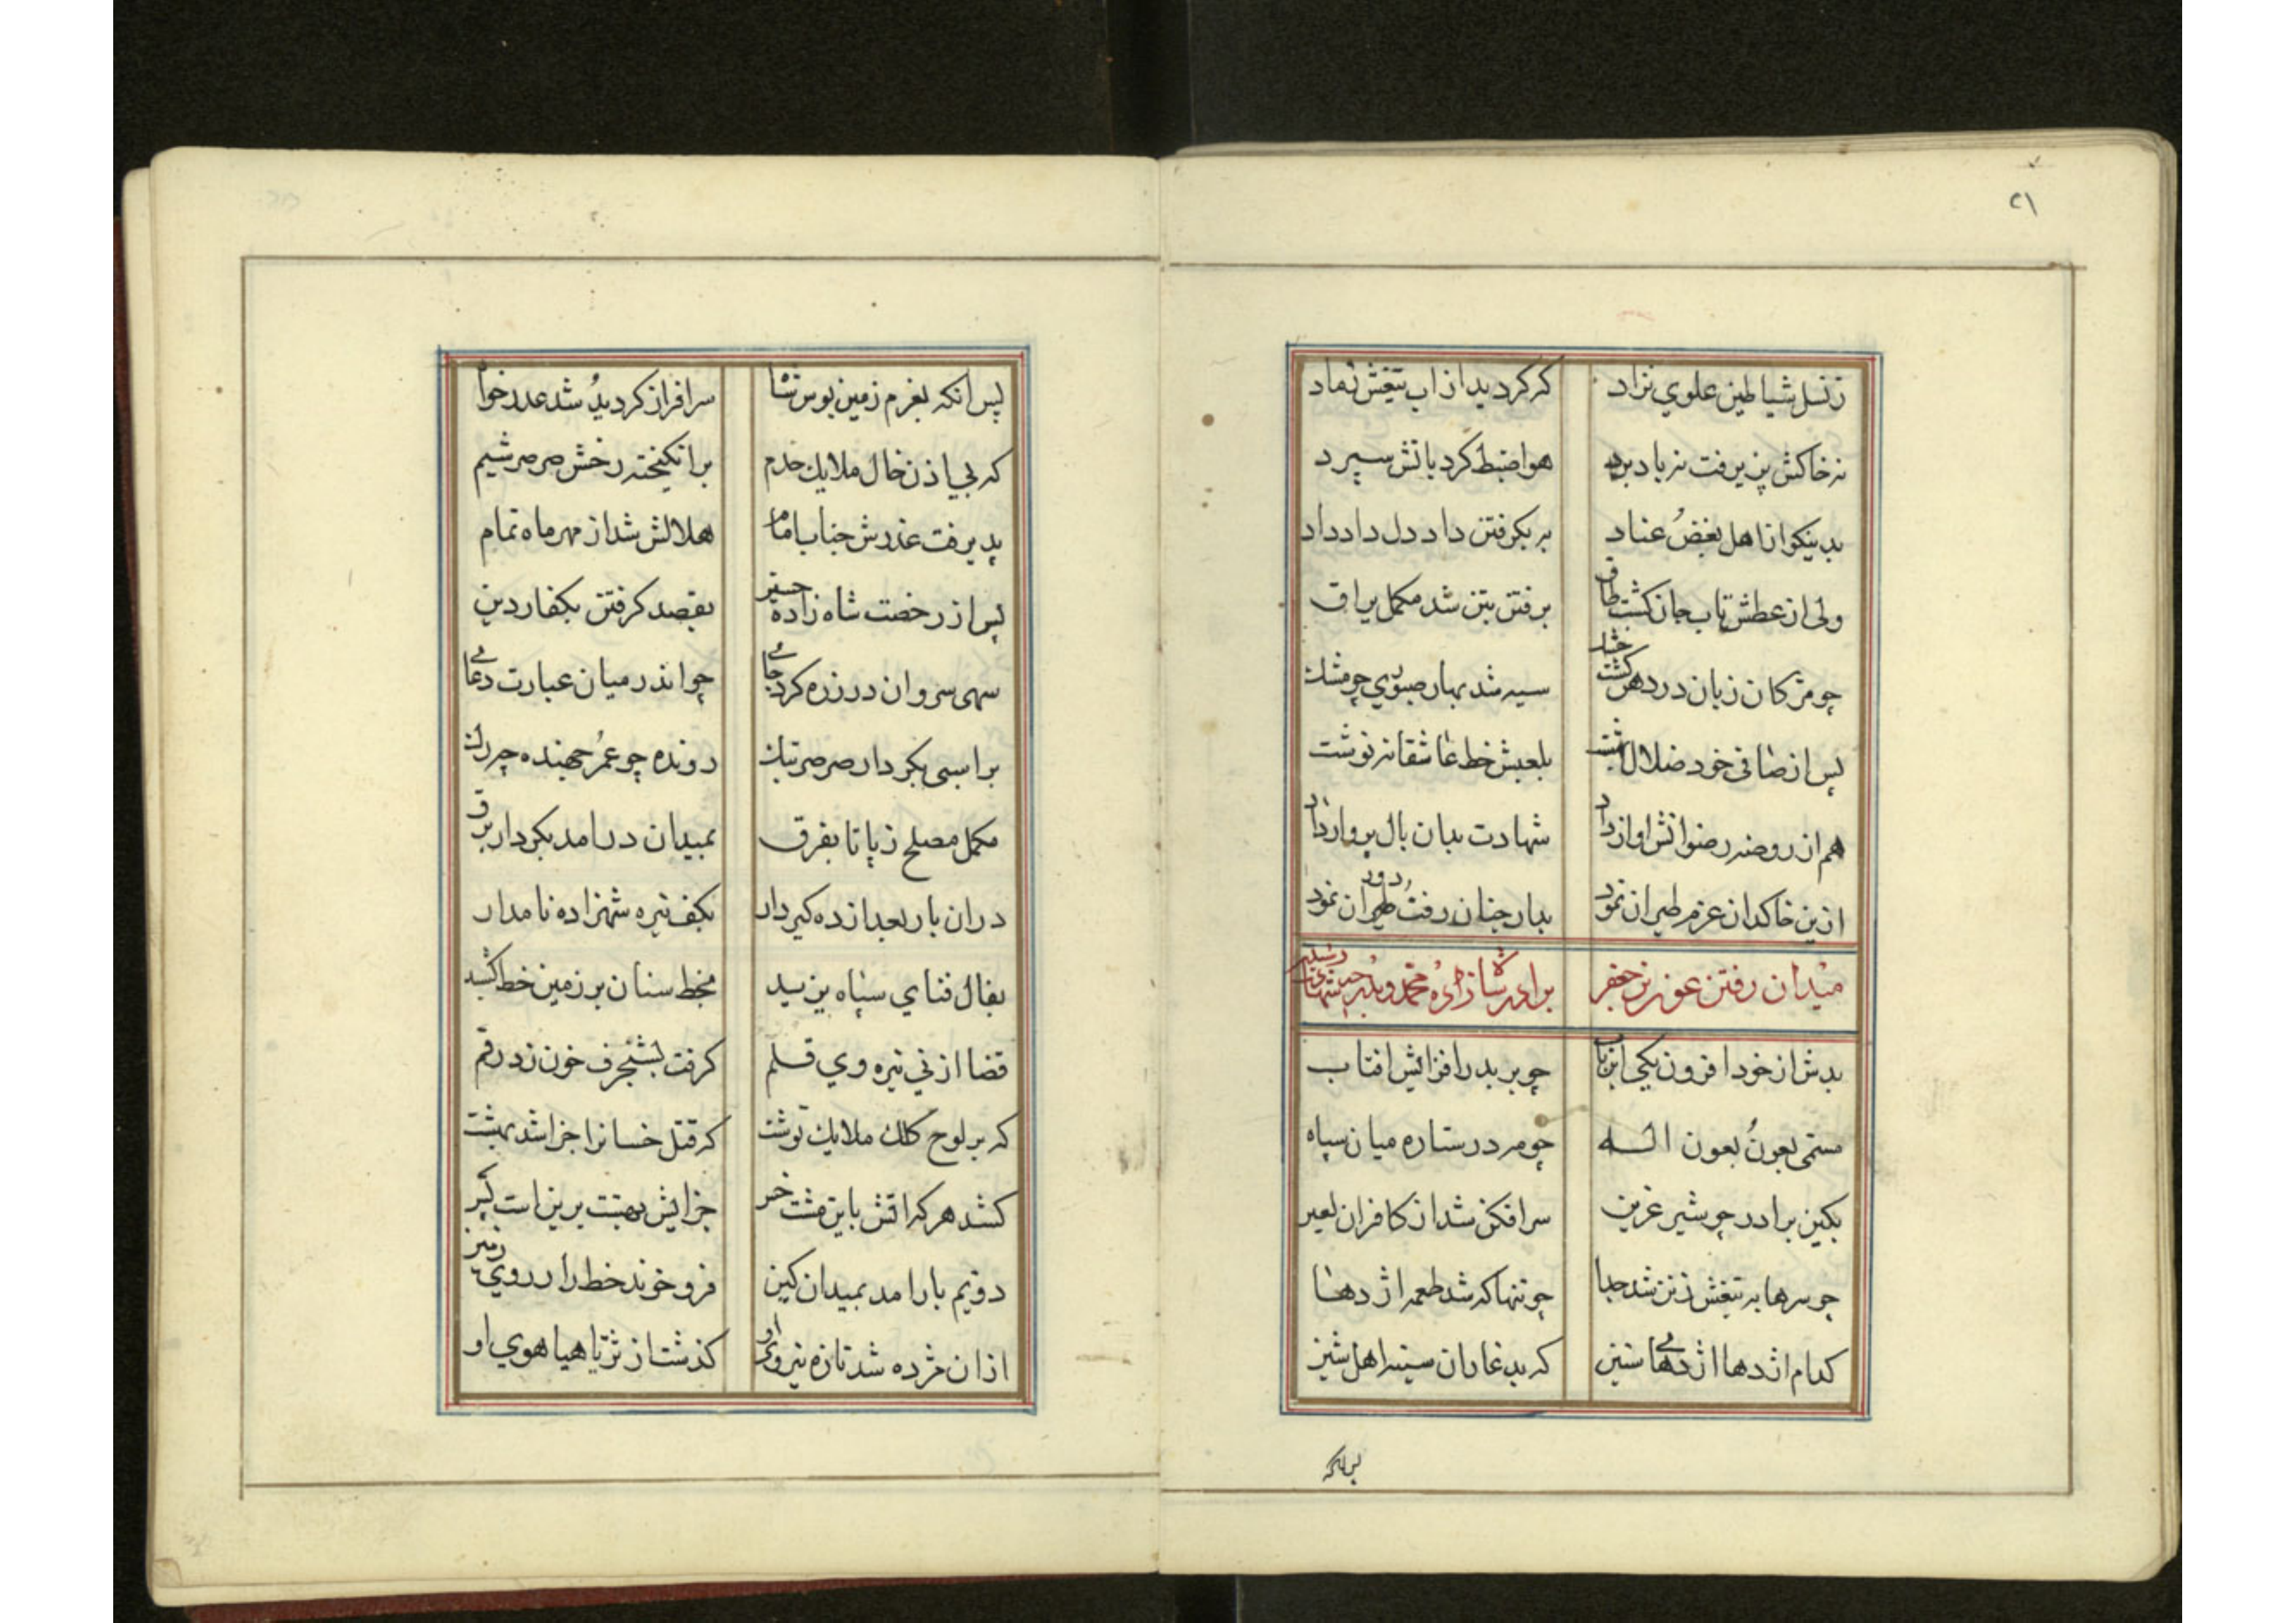 ٢١
زنسل شیاطین علوي نژاد که کردید از اب تیغش نماد
نه خاکش پزیرفت نه باد برد هوا ضبط کرد باتش سپرد
بدینکو از اهل بغض عناد بر بکرفتن داد دل داد داد
ولی از عطش تاب جان کشت طاق برفتن بتن شد مکمل یراق
چو مژکان زبان در دهن کشت خشک سیه شد بهار صبوي چو مشك
پس از صافی خود ضلال بلعبش خط عاشقانه نوشت
هم از روضه رضوانش اواز داد شهادت بدان بال پرواز داد
ازین خاکدان عزم طیران نمود بدار جنان رفت طیران نمود
میدان رفتن عون بن جعفر برادر شازاده محمد و
بدش از خود افزون یکی چو بر بدر افزائش افتاب
مسمی بعون بعون اله چو مه در ستاره میان سپاه
بکین برادر چو شیر عرین سرافکن شد از کافران لعین
چو سرها به تیغش زتن شد جدا چو تنها که شد طعمه اژدها
کدام اژدها اژدهاي ستیز که بد غاران سینه اهل ستیز
پس انکه
پس انکه بعزم زمین بوس شاه سرافراز کردید شد عذر خواه
که بی اذن خال ملایك خدم برانکیخته رخش صرصر شیم
پدیرفت عذرش جناب امام هلالش شد از مهر ماه تمام
پس از رخصت شاه زاده حسین بقصد کرفتن بکفار دین
سهی سرو ان در زره کرد جاي چو اندر میان عبارت دعاي
بر اسبی بکردار صرصر بتك دونده چو عمر جهنده
مکمل مصلح زپا تا بفرق بمیدان درامد بکردار برق
دران بار بعد از ده کیر دار بکف نیزه شهزاده نامدار
بفال فناي سپاه یزید بخط سنان بر زمین خط کشید
قضا از نی نیزه وي قلم کرفت بشنجرف خون زد رقم
که بر لوح کلك ملایك نوشت که قتل خسانرا جزا شد بهشت
کشد هر که اتش باین مشت خس جزایش بهشت برین است
دویم بار امد بمیدان کین فرو خوند خط را ز روي زمین
ازان مژده شد تازه نیروي او کذشت از ثریا هیاهوي او